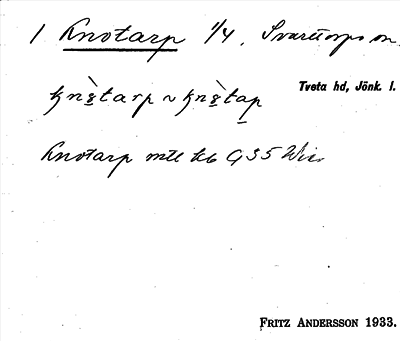 1 Knotarp 1/4, Svarttorps sn.
Tveta hd, Jönk. l.
knòtarp ~ knòtap
Knotarp mtl kb G 35
FRITZ ANDERSSON 1933.